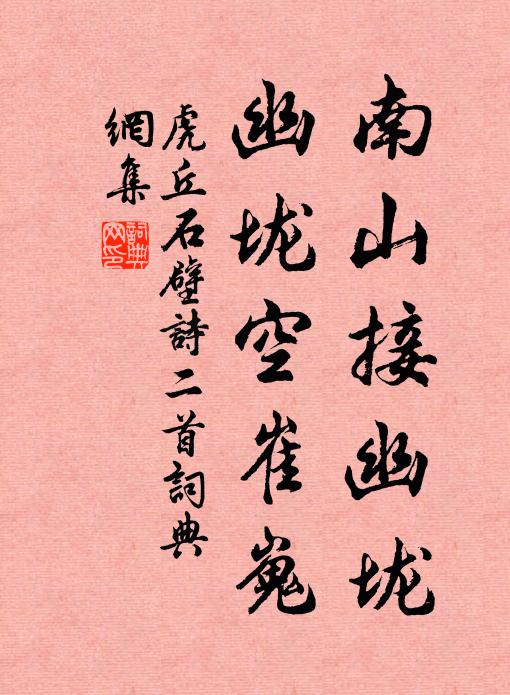 南山接幽垅
幽垅空崔嵬
虎丘石壁詩二首詞典
網集
詞典網印